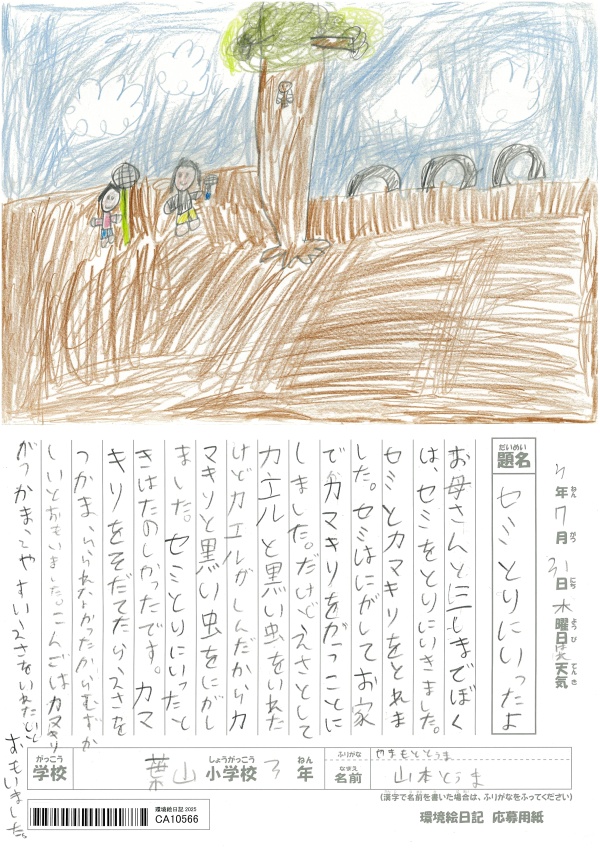 7年7月31日木曜日はれ天気
ねん がつ にち ようび てんき
だいめい
題名 セミとりにいったよ
お母さんと三しまでぼく
は、セミをとりにいきました。
セミとカマキリをとれま
した。セミはにがしてお家
でカマキリをかうことに
しました。だけどえさとして
カエルと黒い虫をいれた
けどカエルがしんだからカ
マキリと黒い虫をにがし
ました。セミとりにいったと
きはたのしかったです。カマ
キリをそだてたらえさを
つかまえられなかったからむずか
しいとおもいました。こんごはカマキリ
がつかまえやすいえさをいれたいと
おもいました。
がっこう しょうがっこう ねん
学校 葉山小学校3年
ふりがな やまもととうま
なまえ
名前 山本とうま
(漢字で名前を書いた場合は、ふりがなをふってください)
環境絵日記 2025
CA10566
環境絵日記 応募用紙